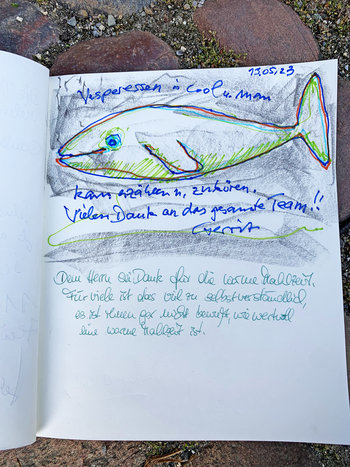 13.05.23
Vesperessen is cool u. man
kann erzählen u. zuhören.
Vielen Dank an das gesamte Team!!
Gerrit
Dem Herrn sei Dank für die warme Mahlzeit.
Für viele ist das viel zu selbstverständlich,
es ist ihnen gar nicht bewußt, wie wertvoll
eine warme Mahlzeit ist.